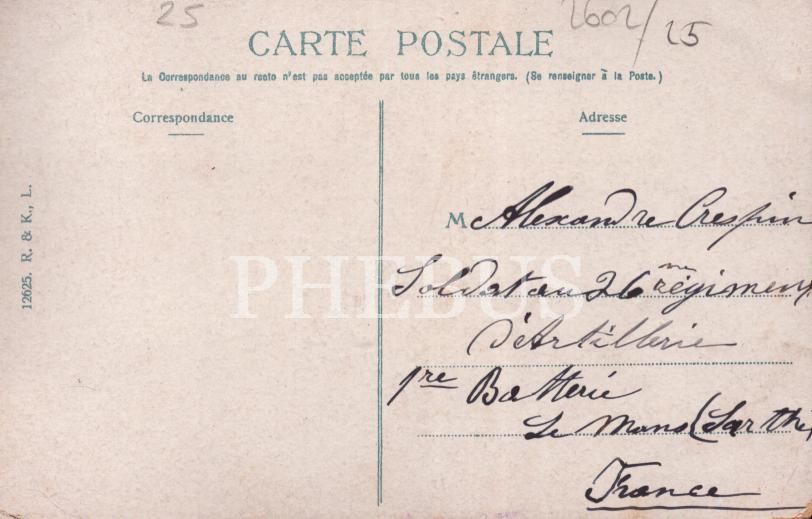 25
2602/25
CARTE POSTALE
La Correspondance au recto n'est pas acceptée par tous les pays étrangers. (Se renseigner à la Poste.)
Correspondance
Adresse
12625. R. & K., L.
M Alexandre Crespin
Soldat au 26me régiment
d'Artillerie
1re Batterie
Le Mans (Sarthe)
France
PHEBUS